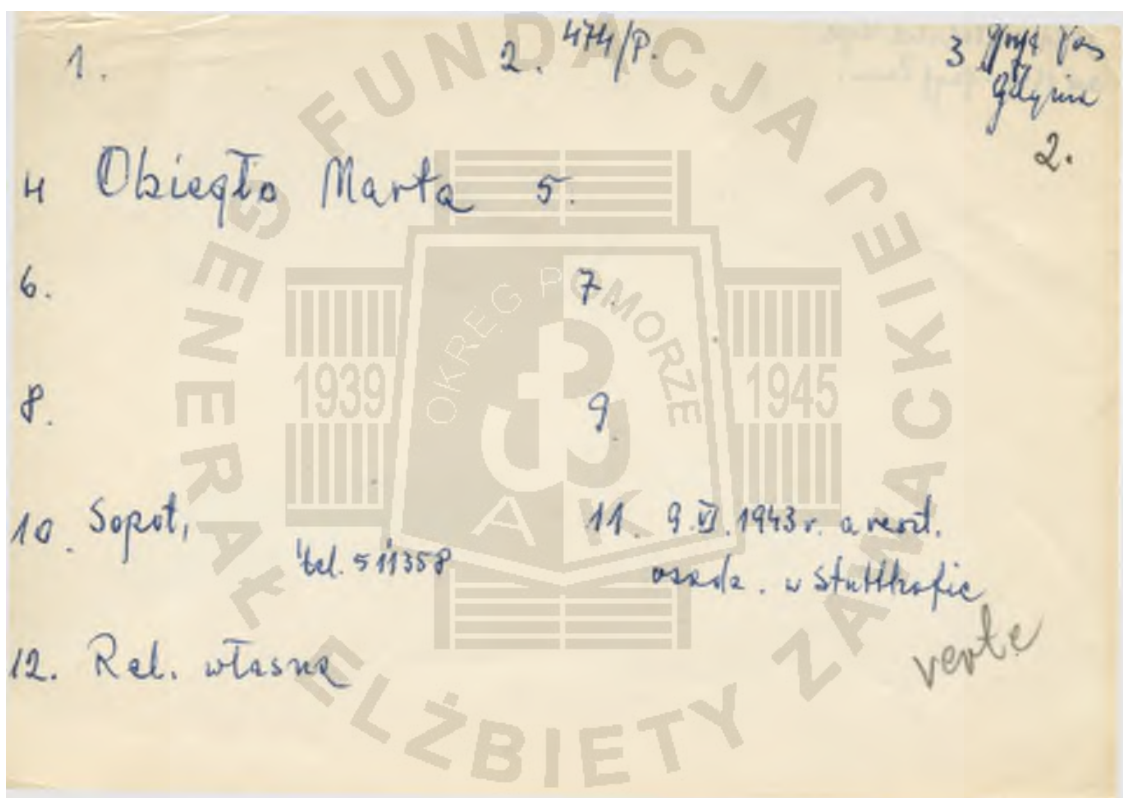 1.
2. 474/P.
3 Gryf Pom
Gdynia
2.
4 Obiegło Marta 5.
6.
7.
8.
9.
10. Sopot,
tel. 511358
11. 9.VI.1943r. areszt.
osadz. w Stutthofie
12. Rel. własna
verte
FUNDACJA
GENERAŁ ELŻBIETY ZAWACKIEJ
OKRĘG POMORZE
1939
1945
AK